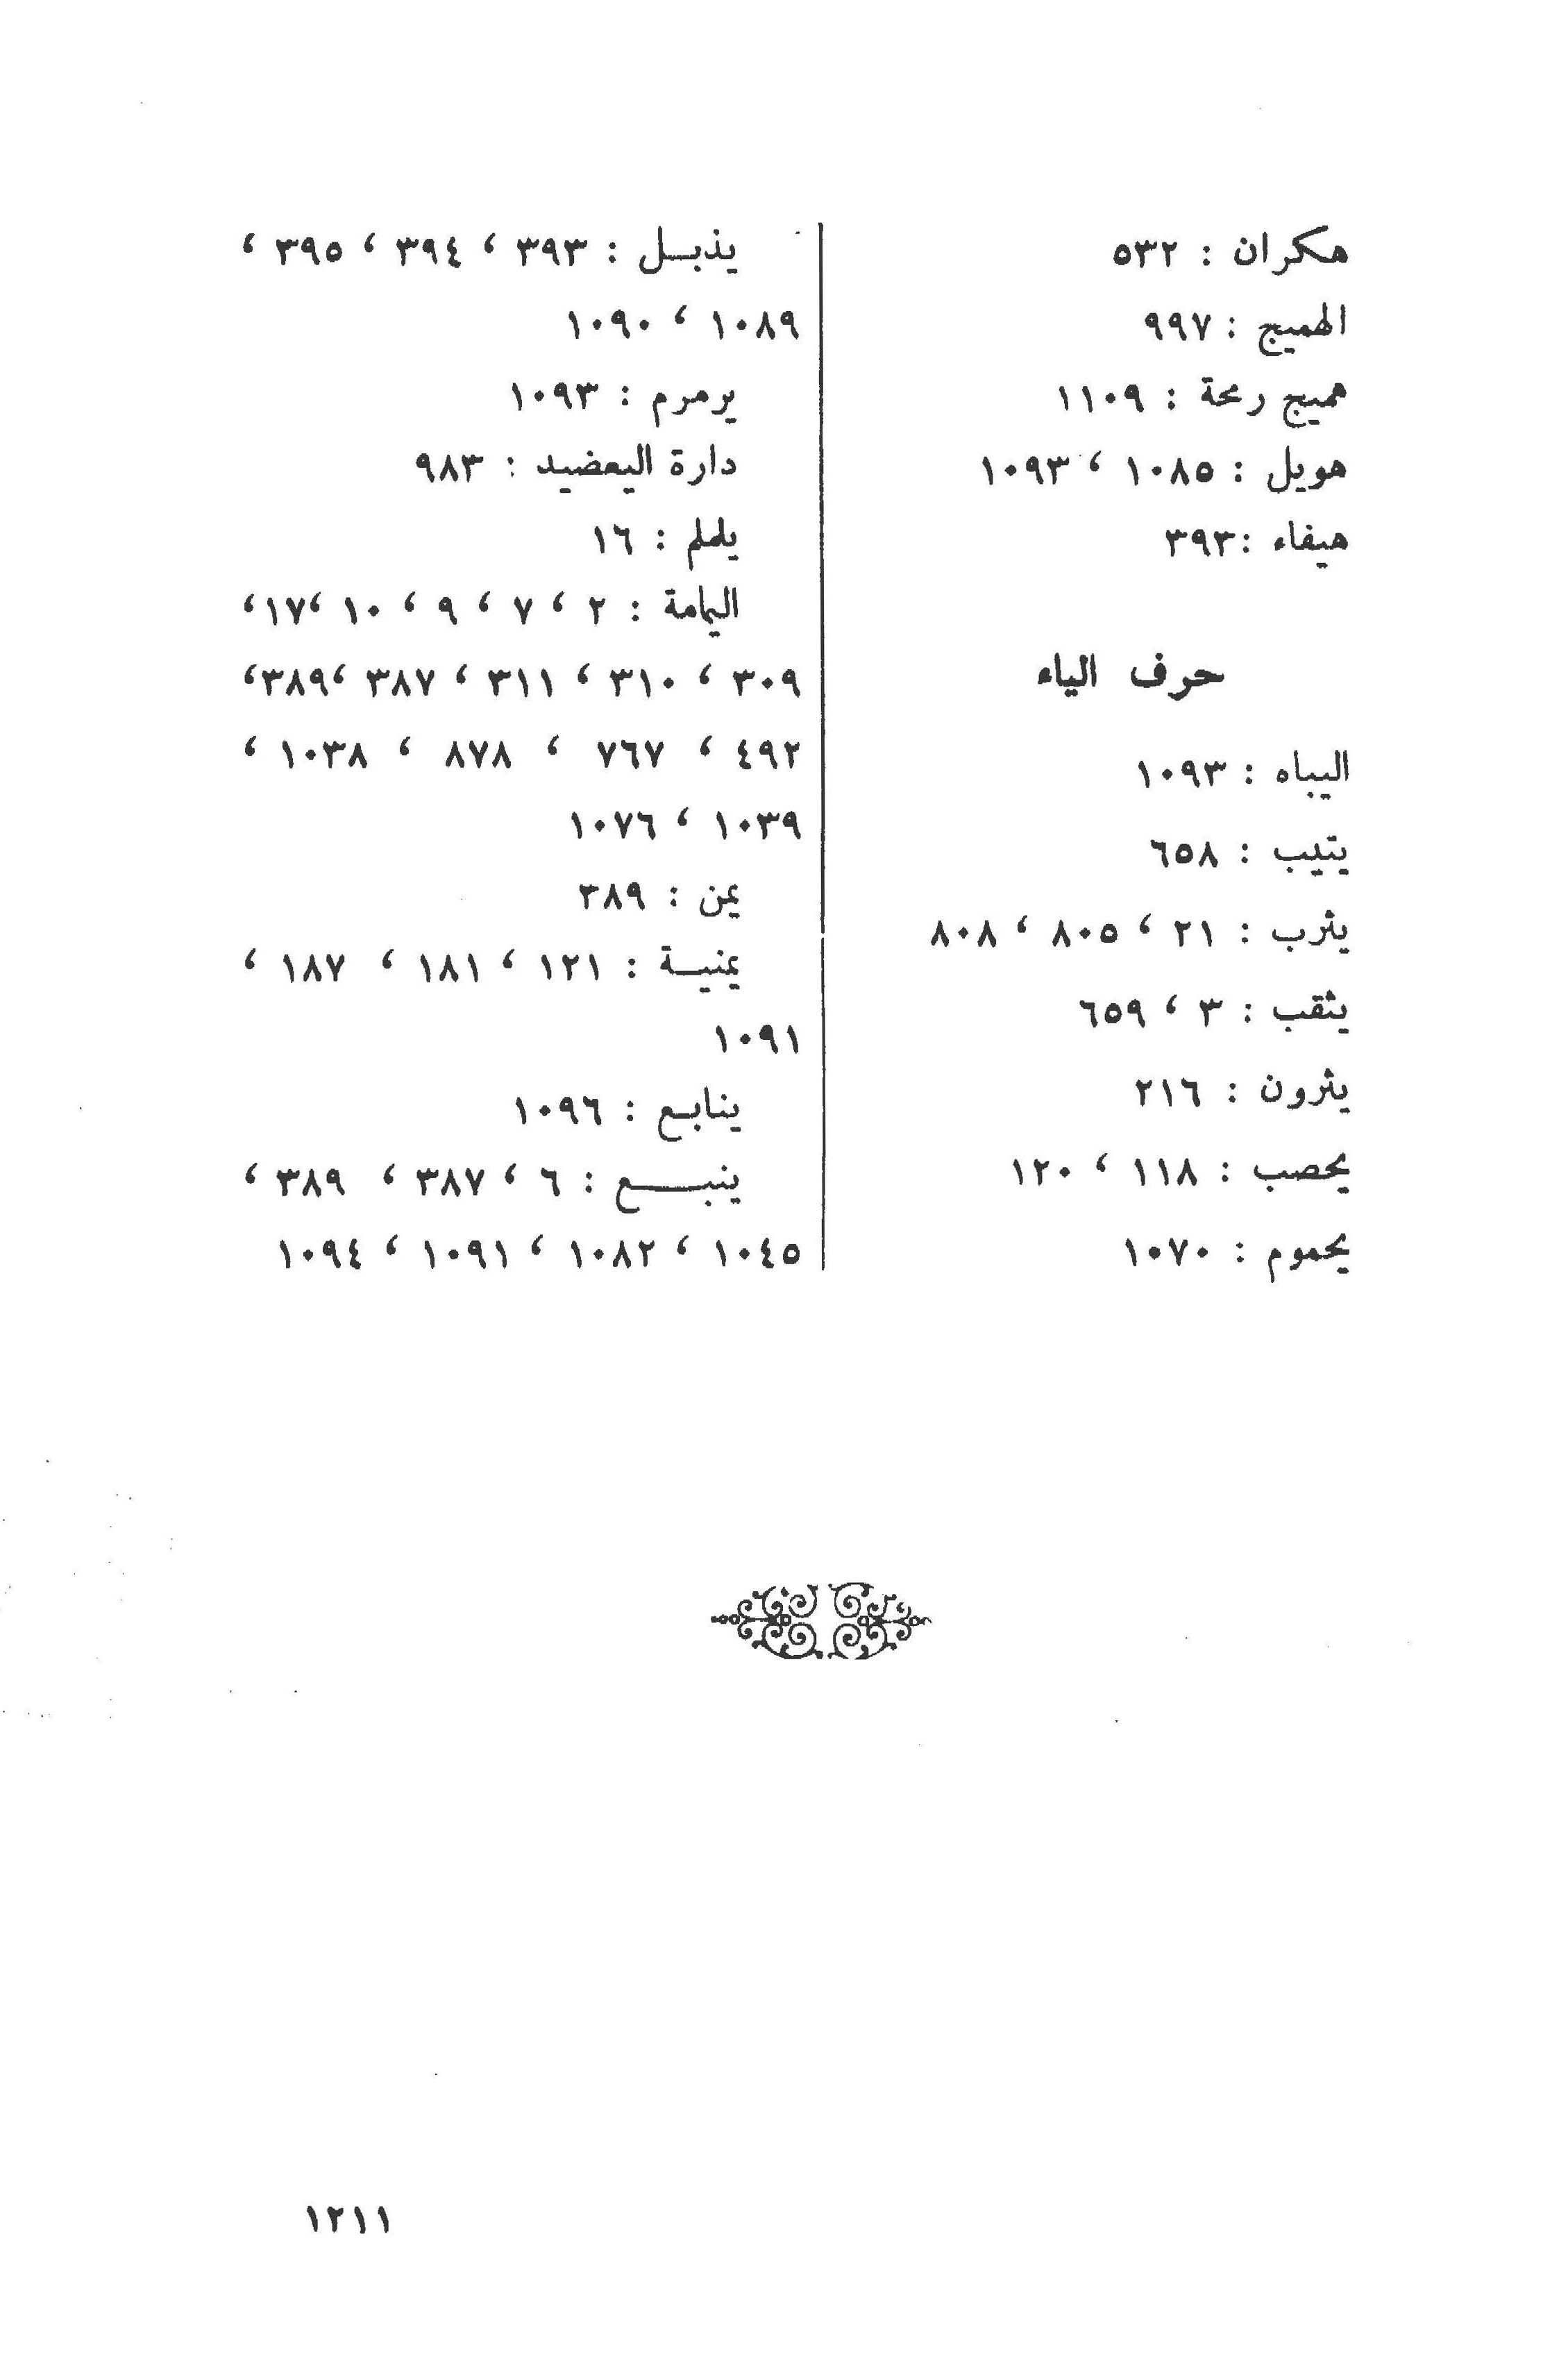 هكران : ٥٣٢
الهميج : ٩٩٧
هميج رمحة : ١١٠٩
هويل : ١٠٨٥ ، ١٠٩٣
هيفاء :٣٩٣
حرف الياء
اليباه : ١٠٩٣
يتيب : ٦٥٨
يثرب : ٢١ ، ٨٠٥ ، ٨٠٨
يثقب : ٣ ، ٦٥٩
يثرون : ٢١٦
يحصب : ١١٨ ، ١٢٠
يحموم : ١٠٧٠
يذبـل : ٣٩٣ ، ٣٩٤ ، ٣٩٥ ،
١٠٨٩ ، ١٠٩٠
يرمرم : ١٠٩٣
دارة اليعضيد : ٩٨٣
يلملم : ١٦
اليمامة : ٢ ، ٧ ، ٩ ، ١٠ ،١٧،
٣٠٩ ، ٣١٠ ، ٣١١ ، ٣٨٧ ،٣٨٩،
٤٩٢ ، ٧٦٧ ، ٨٧٨ ، ١٠٣٨ ،
١٠٣٩ ، ١٠٧٦
يمن : ٣٨٩
يمنيـة : ١٢١ ، ١٨١ ، ١٨٧ ،
١٠٩١
ينابـع : ١٠٩٦
ينبـــع : ٦ ، ٣٨٧ ، ٣٨٩ ،
١٠٤٥ ، ١٠٨٢ ، ١٠٩١ ، ١٠٩٤
١٢١١